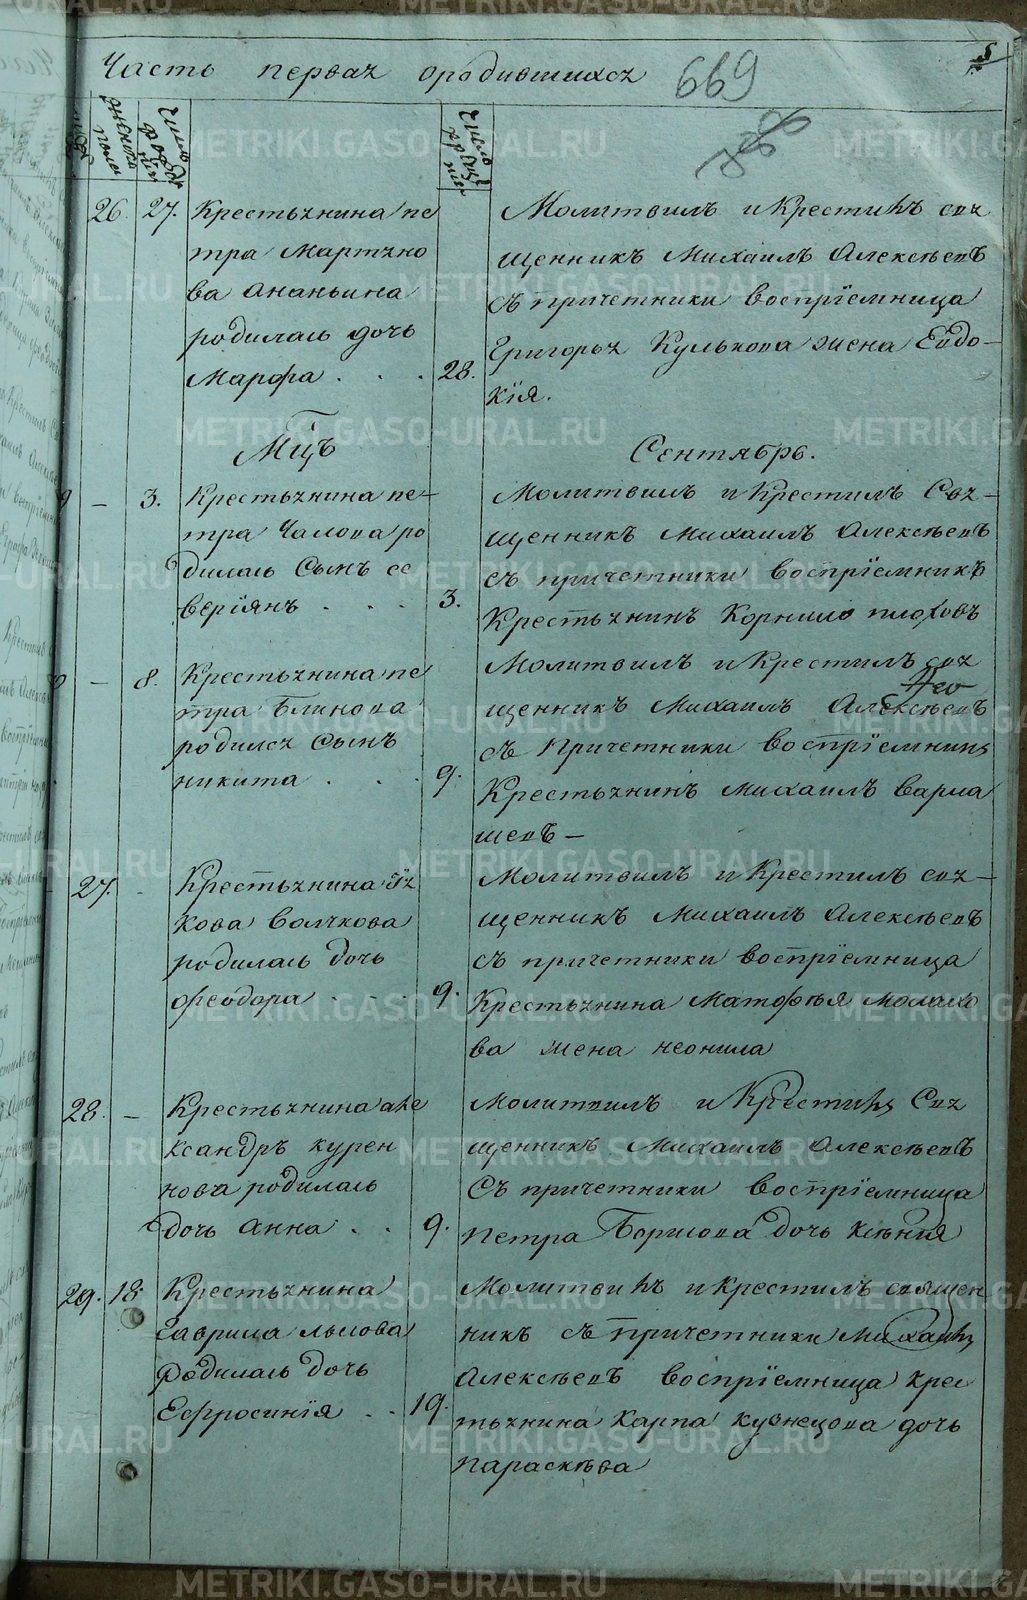 Часть первая ородившихся
669
5
женска полу
Число рожде нія
Число креще нія
26. 27. Крестьянина пе
тра Мартяно
ва Ананьина
родилась дочь
Марфа . . . 28.
Молитвилъ и Крестилъ свя
щенникъ Михаилъ Алексѣевъ
съ причетники воспріемница
Григорья Кулькова жена Евдо-
кія.
Мцъ Сентябрь.
9 — 3. Крестьянина пе-
тра Чалова ро
дилась Сынъ се
веріянъ . . . 3.
Молитвилъ и Крестилъ Свя-
щенникъ Михаилъ Алексѣевъ
съ причетники воспріемникъ
Крестьянинъ Корнило плоховъ
— 8. Крестьянина пе
тра Блинова
родился Сынъ
никита . . . 9.
Молитвилъ и Крестилъ свя
щенникъ Михаилъ Алексѣевъ
съ Причетники воспріемникъ
Крестьянинъ михаилъ варла
шевъ —
27. - Крестьянина Їя
кова Волчкова
родилась дочь
феодора . . . 9.
Молитвилъ и Крестилъ свя-
щенникъ Михаилъ Алексѣевъ
съ причетники воспріемница
Крестьянина Матфѣя Молахо
ва жена неонила
28. — Крестьянина але
ксандръ курен
нова родилась
дочь Анна . . 9.
Молитвилъ и Крестилъ Свя
щенникъ Михаилъ Алексѣевъ
Съ причетники воспріемница
Петра Борисова дочь ксѣнія
29. 18. Крестьянина
Гаврила львова
родилась дочь
Ефросинія . . 19.
Молитвилъ и крестилъ священ
никъ съ причетники михаилъ
Алексѣевъ воспріемница крес
тьянина Карпа кузнецова дочь
параскѣва
METRIKI.GASO-URAL.RU